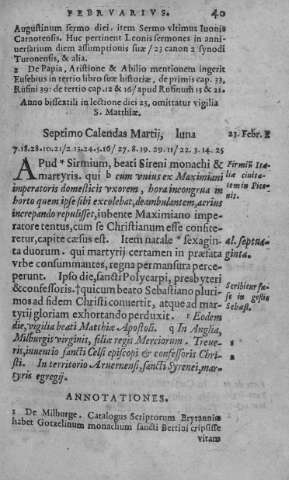 FEBRVARIVS. 40
Augustinum sermo diei. item Sermo vltimus Iuonis
Carnotensis. Huc pertinent Leonis sermones in anni-
uersarium diem assumptionis suæ / 23 canon 2 synodi
Turonensis, & alia.
2 De Papia, Aristione & Abilio mentionem ingerit
Eusebius in tertio libro suæ historiæ, de primis cap. 33,
Rufini 39: de tertio cap. 12 & 16 / apud Rufinum 15 & 21.
Anno bissextili in lectione diei 23, omittatur vigilia
S. Matthiæ.
Septimo Calendas Martij, luna 23. Febr. E
A Pud * Sirmium, beati Sireni monachi &
martyris. qui b cum vnius ex Maximiani
imperatoris domesticis vxorem, hora incongrua in
horto quem ipse sibi excolebat, deambulantem, acrius
increpando repulisset, iubente Maximiano impe-
ratore tentus, cum se Christianum esse confite-
retur, capite cæsus est. Item natale * sexagin-
ta duorum. qui martyrij certamen in præfata
vrbe consummantes, regna permansura perce-
perunt. Ipso die, sancti Polycarpi, presbyteri
& confessoris. † quicum beato Sebastiano pluri-
mos ad fidem Christi conuertit, atque ad mar-
tyrij gloriam exhortando perduxit. Eodem
die, vigilia beati Matthiæ Apostoli. q In Anglia,
Milburgis virginis, filiæ regis Merciorum. Treue-
ris, inuentio sancti Celsi episcopi & confessoris Chri-
sti. In territorio Aruernensi, sancti Syrenei, mar-
tyris egregij.
Firmij Ita-
liæ ciuita-
tem in Pice-
nis.
al. septua-
ginta.
Scribitur fal-
se in gestis
Sebast.
ANNOTATIONES.
1 De Milburge. Catalogus Scriptorum Brytanniæ
habet Gotzelinum monachum sancti Bertini cripsisse
vitam